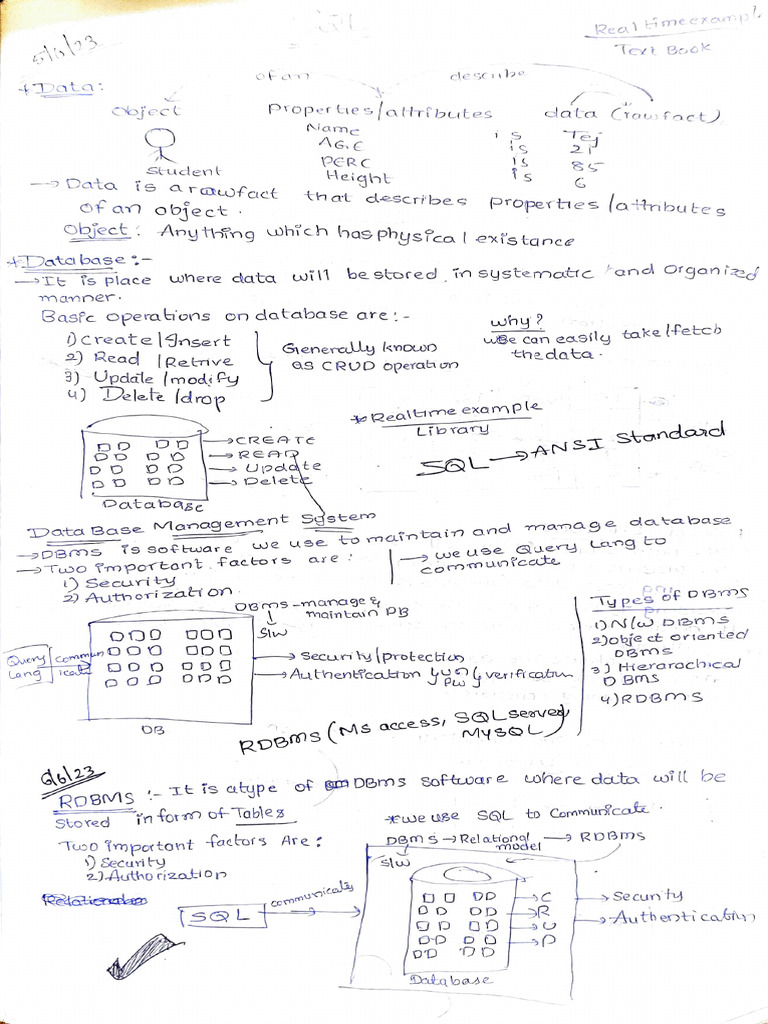 5/6/23
Real time exampl
Text Book
+ Data:
of an
describe
Object
properties/attributes
data (rawfact)
Name is Tej
AGE is 21
PERC is 85
Height is 6
Student
→ Data is a rawfact that describes properties/attributes
of an object.
Object: Anything which has physical existance
+ Database:-
→ It is place where data will be stored in systematic and Organized
manner.
Basic operations on database are:-
1) Create/Insert
2) Read /Retrive
3) Update/modify
4) Delete/drop
Generally known
as CRUD operation
why?
we can easily take/fetch
the data.
* Realtime example
Library
SQL → ANSI Standard
→ CREATE
→ READ
→ Update
→ Delete
Database
Data Base Management System
→ DBMS is software we use to maintain and manage database
→ Two important factors are:
1) Security
2) Authorization
→ we use Query Lang to
communicate
DBMS - manage &
maintain DB
S/w
Query
Lang
communi
icate
→ Security/protection
→ Authentication { UN PW } verification
DB
Types of DBMS
1) N/W DBMS
2) Object oriented
DBMS
3) Hierarachical
DBMS
4) RDBMS
RDBMS (MS access, SQL server,
MySQL)
6/6/23
RDBMS :- It is a type of DBMS software where data will be
stored in form of Tables
* we use SQL to communicate.
Two important factors Are:
1) Security
2) Authorization
DBMS → Relational
model → RDBMS
S/w
SQL
communicate
→ C
→ R
→ U
→ D
→ Security
→ Authentication
Database